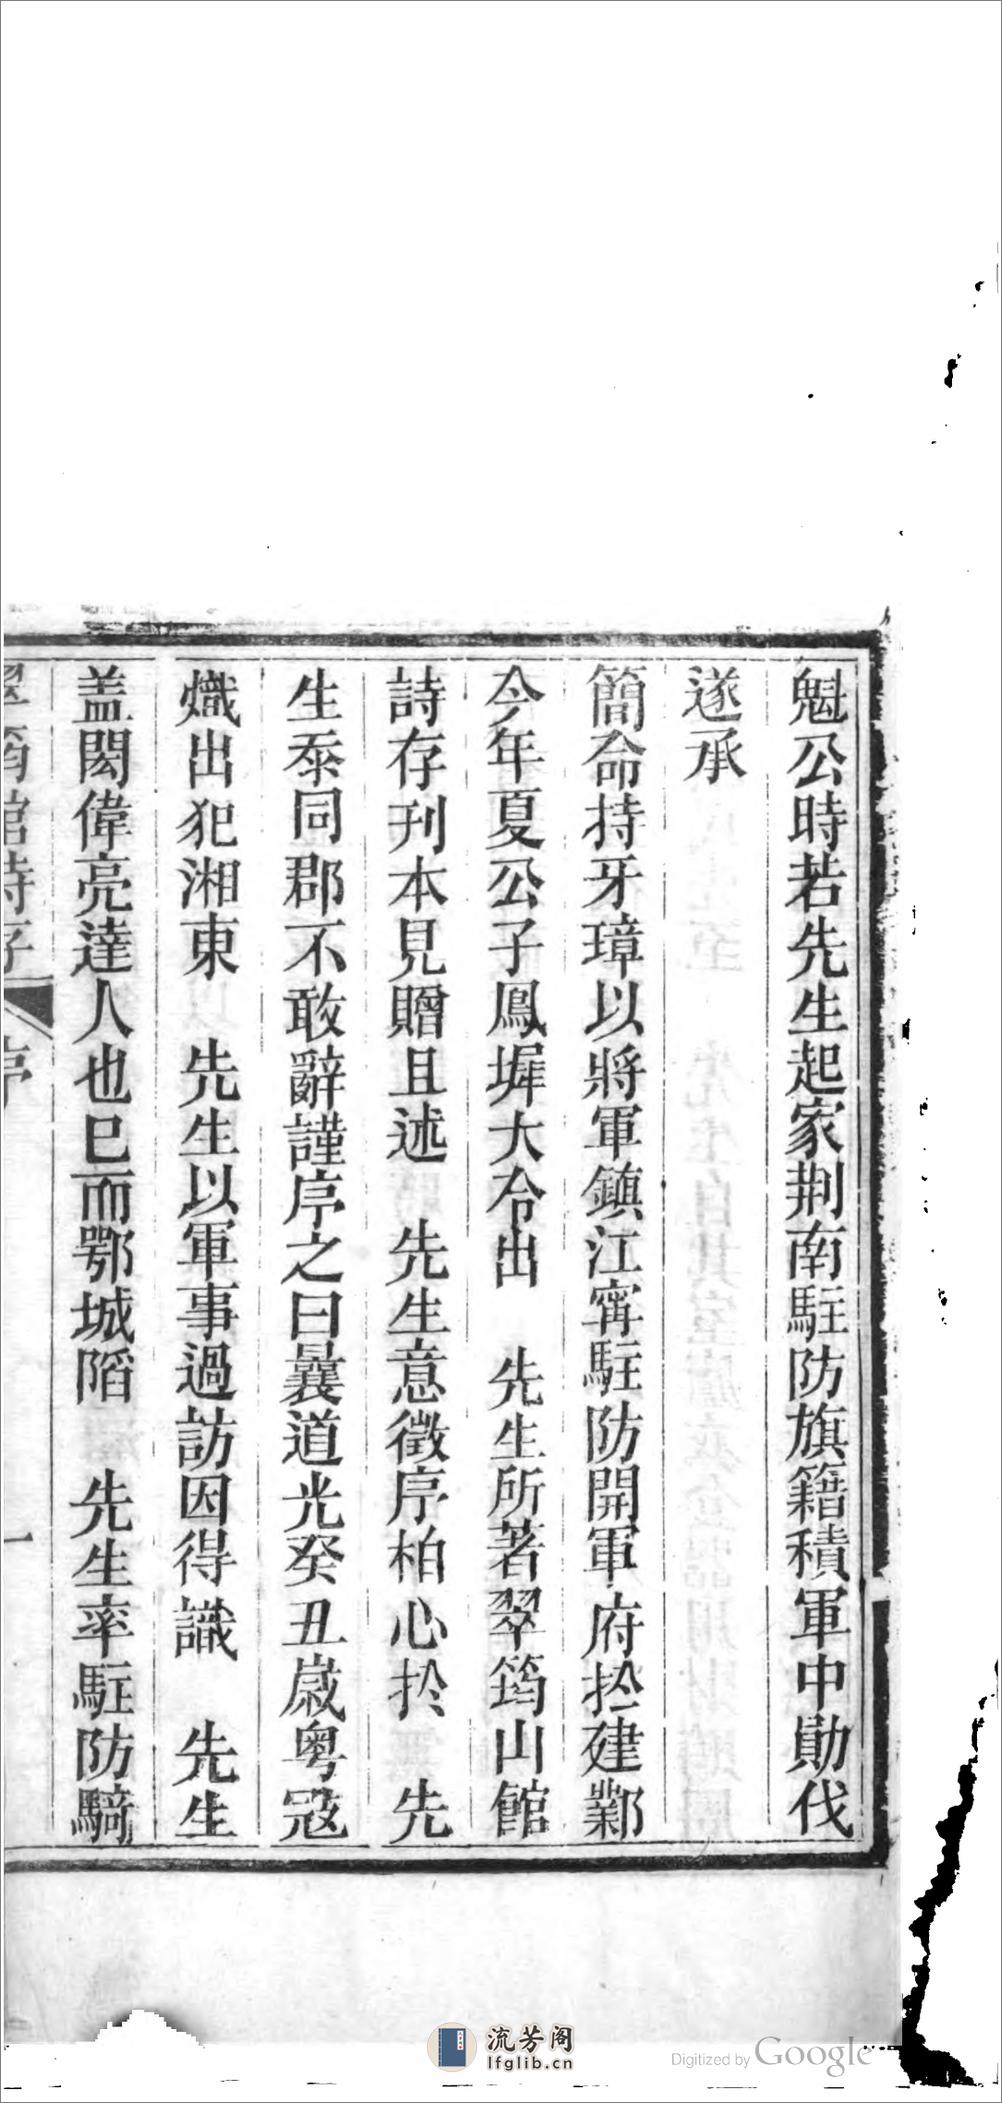 魁公時若先生起家荆南駐防旗籍積軍中勛伐
遂承
簡命持牙璋以將軍鎮江寗駐防開軍府扵建鄴
今年夏公子鳳墀大令出　先生所著翠筠山館
詩存刊本見贈且述　先生意徵序柏心扵　先
生忝同郡不敢辭謹序之曰曩道光癸丑歲粤冦
熾出犯湘東　先生以軍事過訪因得識　先生
盖閎偉亮達人也已而鄂城䧟　先生率駐防騎
翠筠館詩存　序　一
流芳阁
lfglib.cn
Digitized by Google